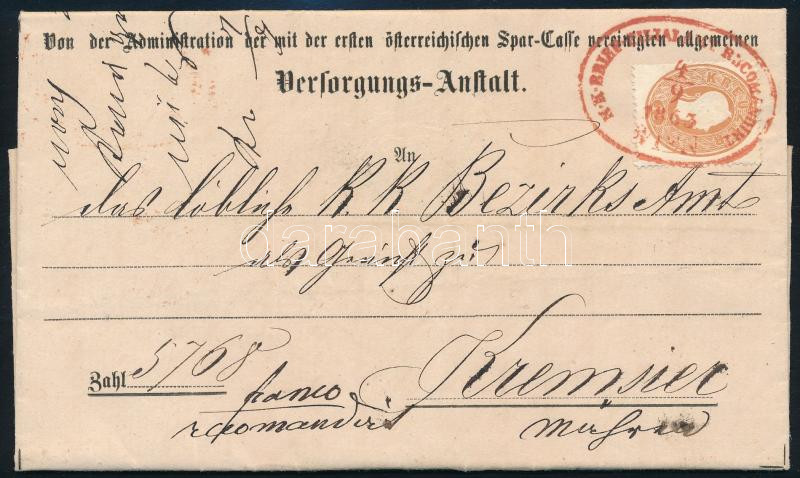 Von der Administration der mit der ersten österreichischen Spar-Casse vereinigten allgemeinen
Versorgungs-Anstalt.
4
9
1863
WIEN
An
das löbliche K. K. Bezirks Amt
als Gericht zu
darabanth
Kremsier
Zahl 5768
franco
recomandirt
Mähren